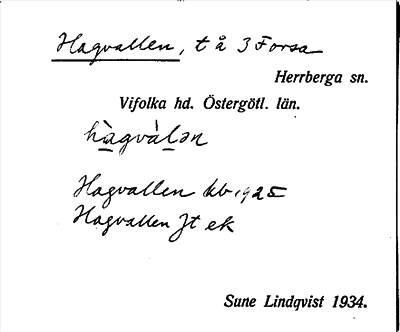 Hagvallen, t å 3 Forsa
Herrberga sn.
Vifolka hd. Östergötl. län.
hàgvàlən
Hagvallen kb. 1925
Hagvallen Jt ek
Sune Lindqvist 1934.